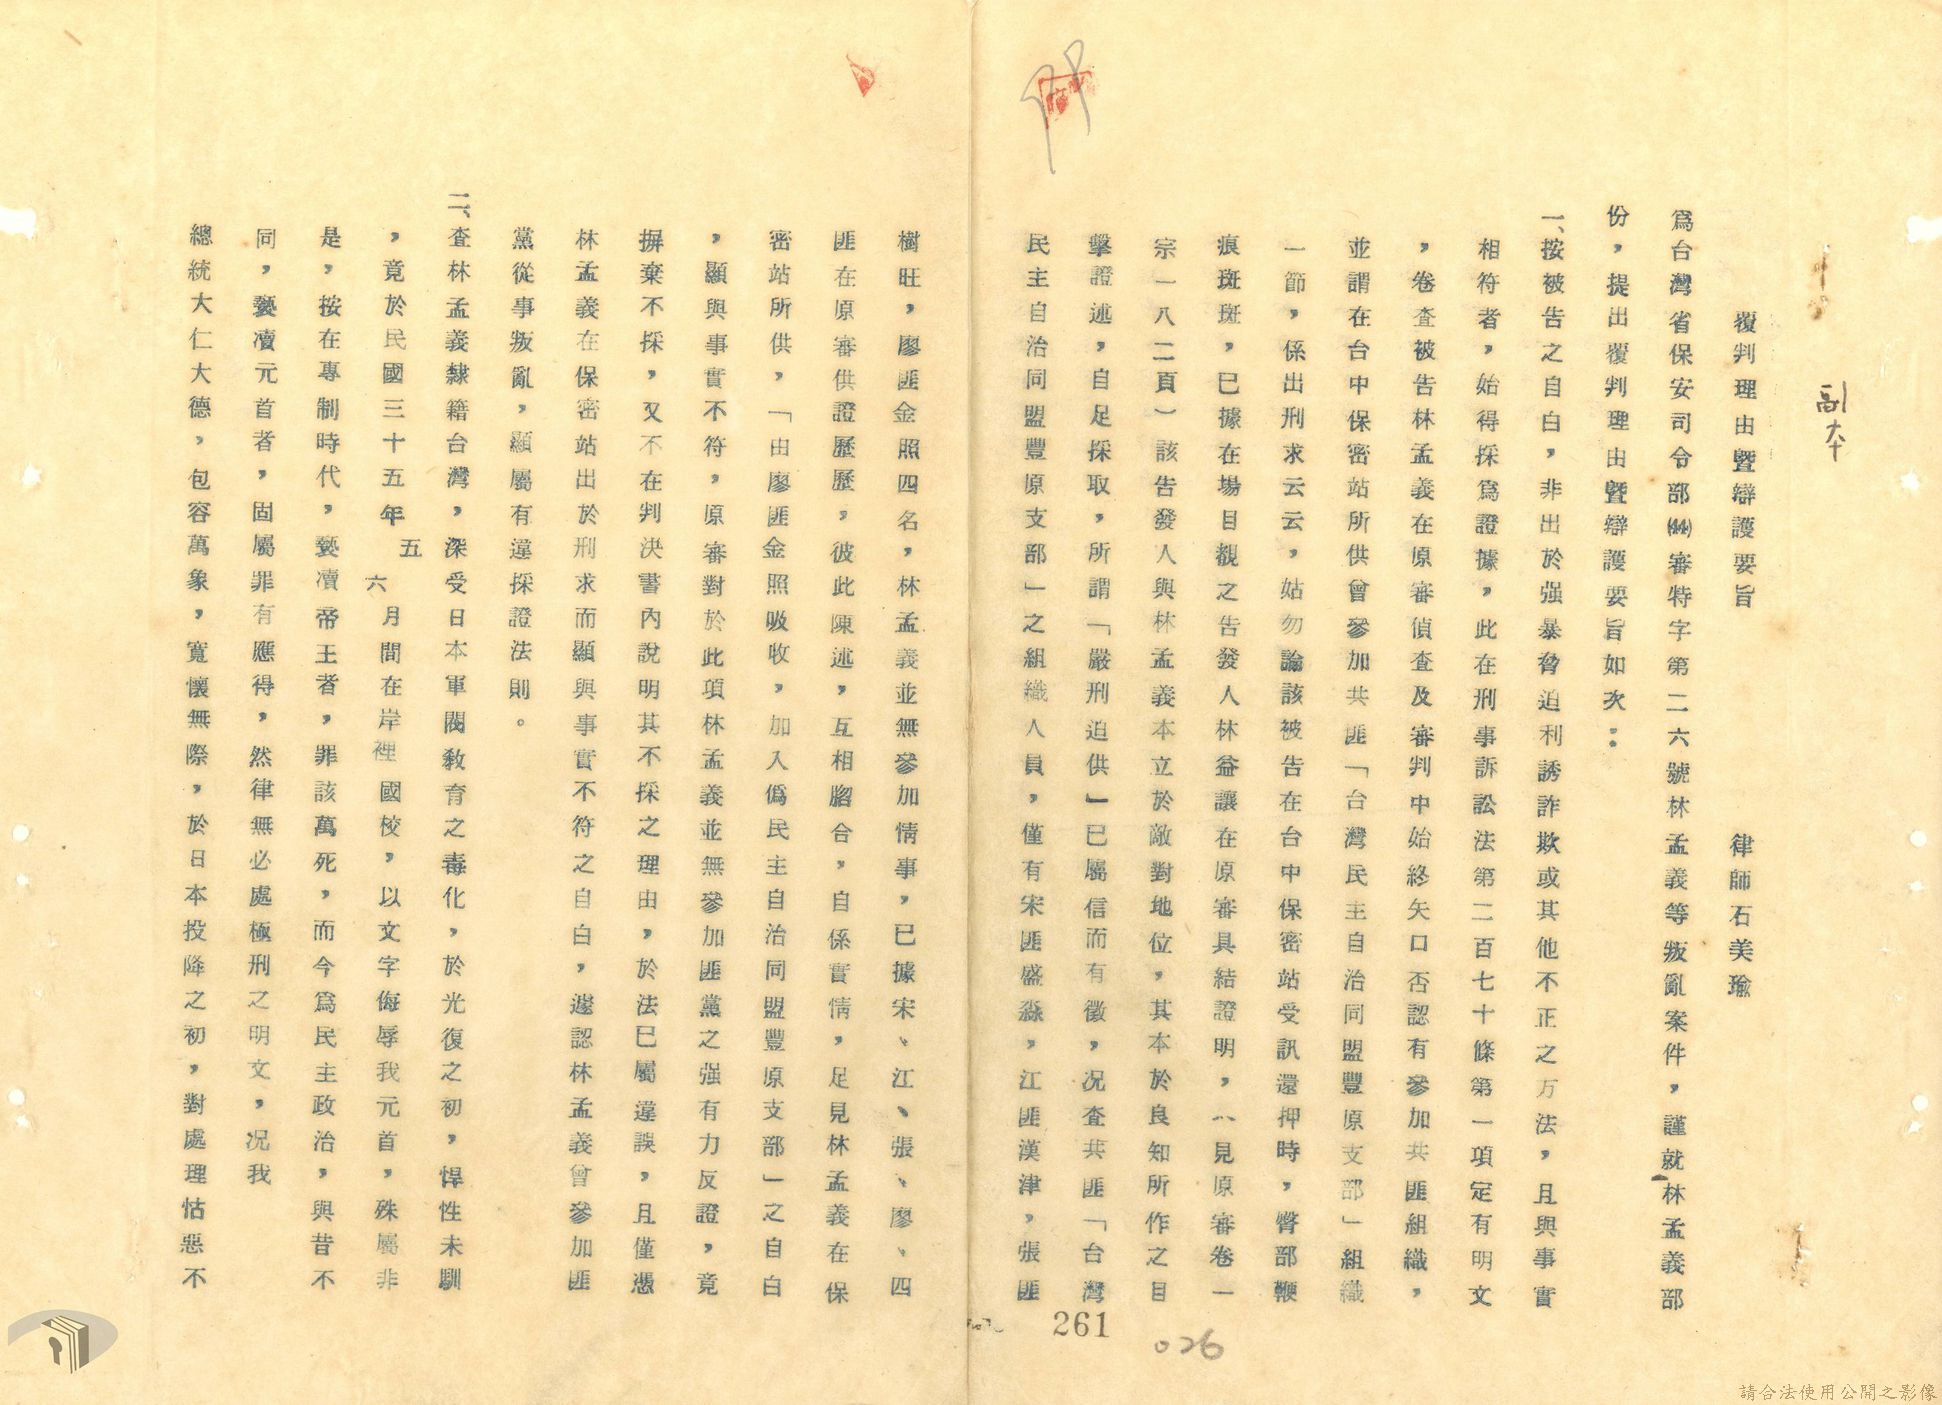 副本
覆判理由暨辯護要旨　律師石美瑜
為台灣省保安司令部㈣審特字第二六號林孟義等叛亂案件，謹就林孟義部
份，提出覆判理由暨辯護要旨如次：
一、按被告之自白，非出於强暴脅迫利誘詐欺或其他不正之方法，且與事實
相符者，始得採為證據，此在刑事訴訟法第二百七十條第一項定有明文
，卷查被告林孟義在原審偵查及審判中始終矢口否認有參加共匪組織，
並謂在台中保密站所供曾參加共匪「台灣民主自治同盟豐原支部」組織
一節，係出刑求云云，姑勿論該被告在台中保密站受訊還押時，臀部鞭
痕斑斑，已據在場目覩之告發人林益讓在原審具結證明，（見原審卷一
宗一八二頁）該告發人與林孟義本立於敵對地位，其本於良知所作之目
擊證述，自足採取，所謂「嚴刑迫供」已屬信而有徵，况查共匪「台灣
民主自治同盟豐原支部」之組織人員，僅有宋匪盛淼，江匪漢津，張匪
261
026
樹旺，廖匪金照四名，林孟義並無參加情事，已據宋、江、張、廖、四
匪在原審供證歷歷，彼此陳述，互相脗合，自係實情，足見林孟義在保
密站所供，「由廖匪金照吸收，加入偽民主自治同盟豐原支部」之自白
，顯與事實不符，原審對於此項林孟義並無參加匪黨之强有力反證，竟
摒棄不採，又不在判決書內說明其不採之理由，於法已屬違誤，且僅憑
林孟義在保密站出於刑求而顯與事實不符之自白，遽認林孟義曾參加匪
黨從事叛亂，顯屬有違採證法則。
二、查林孟義隸籍台灣，深受日本軍閥敎育之毒化，於光復之初，悍性未馴
，竟於民國三十五年五六月間在岸裡國校，以文字侮辱我元首，殊屬非
是，按在專制時代，褻瀆帝王者，罪該萬死，而今為民主政治，與昔不
同，褻瀆元首者，固屬罪有應得，然律無必處極刑之明文，况我
總統大仁大德，包容萬象，寬懷無際，於日本投降之初，對處理怙惡不
請合法使用公開之影像